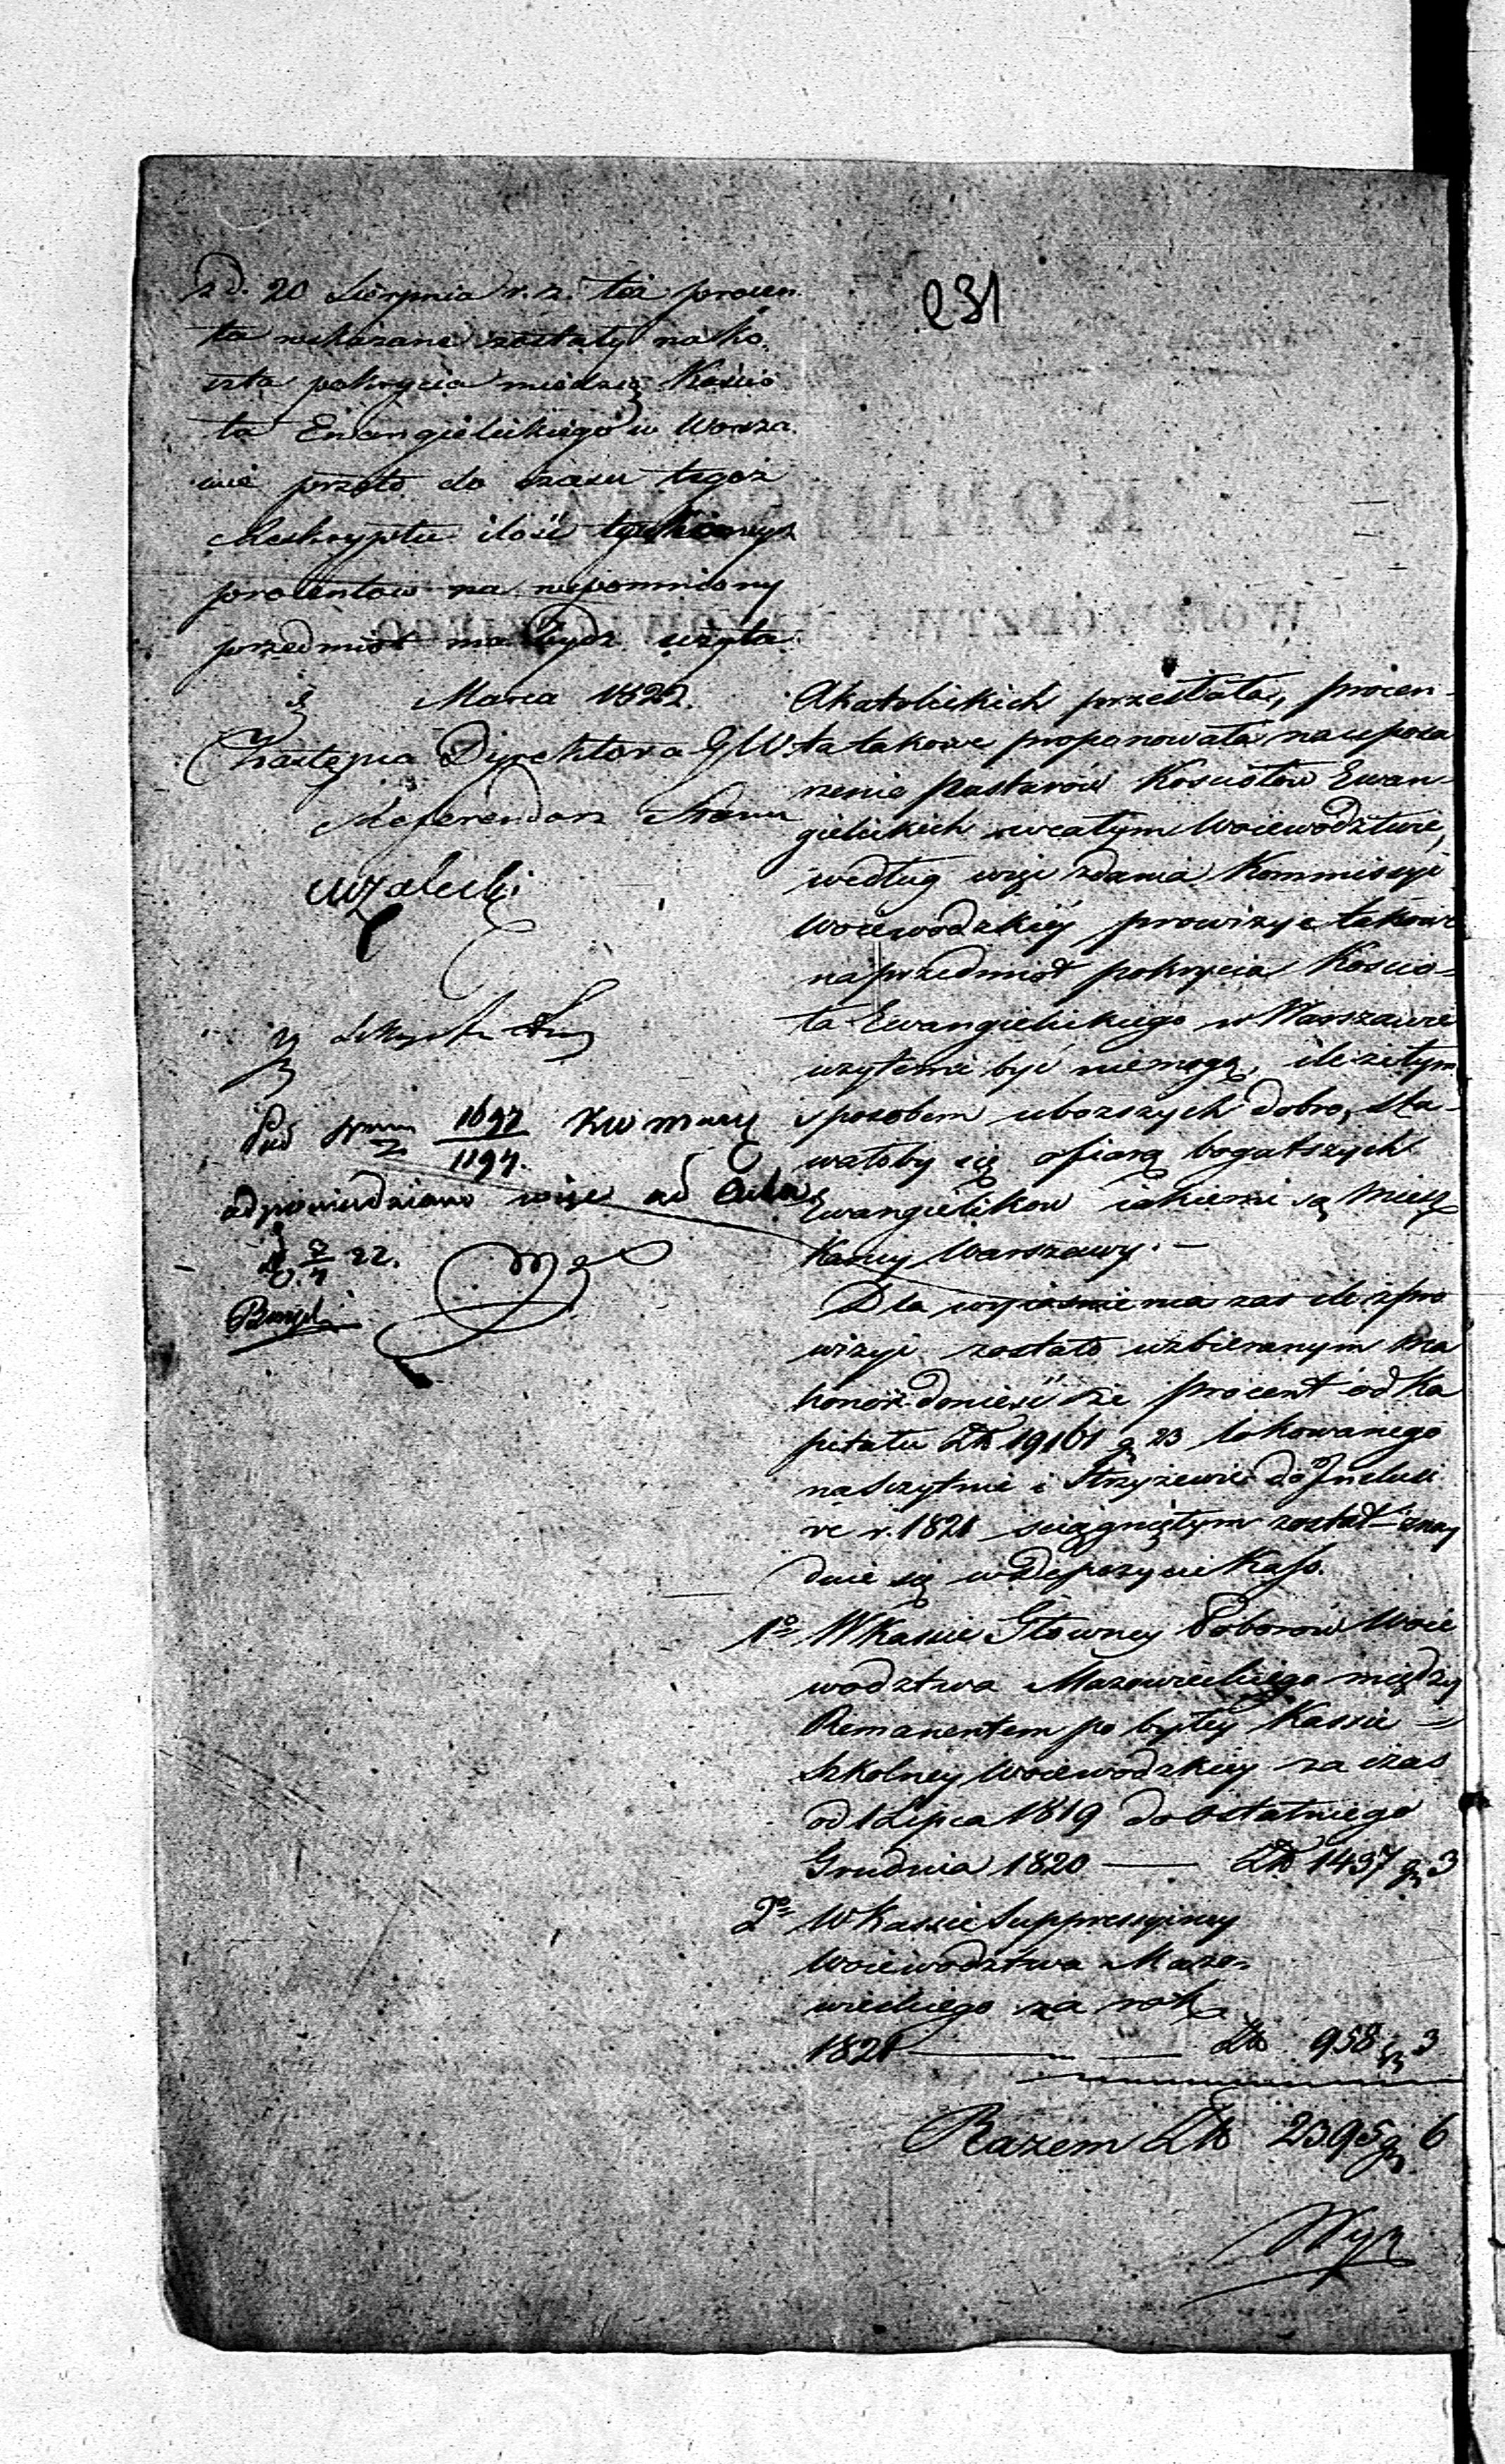 231
z d. 20 Sierpnia r. z. też procen-
ta wskazane zostały na ko-
szta pokrycia miedzią Kościo-
ła Ewangielickiego w Warsza-
wie przeto do czasu tegoż
Reskryptu ilość
procentow na wspomniony
przedmiot ma bydz użyta.
Marca 1822.
Zastępca Dyrektora J W.
Referendarz Stanu
1697
1194.
odpowiedziano więc ad
22.
Akatolickich przesłała, procen-
ta takowe proponowała na uposa-
żenie pastorów Kościołów Ewan-
gielickich w całym Woiewództwie,
według więc zdania Kommissyi
Woiewodzkiéy prowizye takowe
na przedmiot pokrycia Kościo-
ła Ewangielickiego w Warszawie
użytemi być niemogą, ile że tym
sposobem uboższych dobro, sta-
wałoby się ofiarą bogatszych
Ewangielikow iakiemi są Miesz
kańcy Warszawy. —
Dla wyiaśnienia zaś ile z pro
wizyi zostało uzbieranym ma
honor donieść że procent od Ka
pitału Złp 19161 gr 23 lokowanego
na Szczytnie i Strzyżewie do Inclusi
ve r. 1821 ściągniętym został – znay
duie się w Depozycie Kass.
1o W Kassie Głowney Poborow Woie
wodztwa Mazowieckiego między
Remanentem po byłéy Kassie
Szkolney Woiewodzkiey za czas
od 1 Lipca 1819 do ostatniego
Grudnia 1820 — Złp 1437 gr 3
2o W Kassie Suppressyiney
Woiewodztwa Mazo-
wieckiego za rok
1821 — Złp 958 gr 3
Razem Złp 2395 gr 6